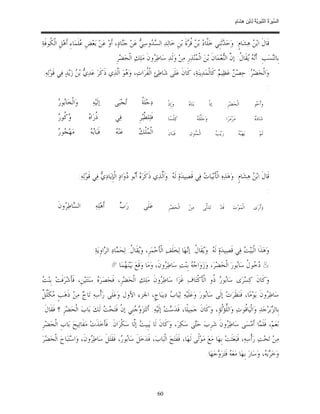 السِّيرَةُ النَّبَوِيَّةُ لِابْنِ هِشَامٍ
قَالَ ابْنُ هِشَامٍ: وَحَدَّثَنِي خَلَّادُ بْنُ قُرَّةَ بْنِ خَالِدٍ السَّدُوسِيُّ عَنْ جَنَّادٍ، أَوْ عَنْ بَعْضِ عُلَمَاءِ أَهْلِ الْكُوفَةِ
بِالنَّسَبِ: أَنَّهُ يُقَالُ: إنَّ النُّعْمَانَ بْنَ الْمُنْذِرِ مِنْ وَلَدِ سَاطِرُونَ مَلِكِ الْحَضْرِ.
وَالْحَضْرُ: حِصْنٌ عَظِيمٌ كَالْمَدِينَةِ، كَانَ عَلَى شَاطِئِ الْفُرَاتِ، وَهُوَ الَّذِي ذَكَرَ عَدِيُّ بْنُ زَيْدٍ فِي قَوْلِهِ
:
وَأَخُو الْحَضْرِ إذْ بَنَاهُ وَإِذْ دِجْلَةُ تُجْبَى إلَيْهِ وَالْخَابُورُ
شَادَهُ مَرْمَرًا وَجَلَّلَهُ كِلْسًا فَلِلطَّيْرِ فِي ذُرَاهُ وُكُورُ
لَمْ يَهَبْهُ رَيْبُ الْمَنُونِ فَبَانَ الْمُلْكُ عَنْهُ فَبَابُهُ مَهْجُورُ
:
قَالَ ابْنُ هِشَامٍ: وَهَذِهِ الْأَبْيَاتُ فِي قَصِيدَةٍ لَهُ. وَاَلَّذِي ذَكَرَهُ أَبُو دُوَادٍ الْإِيَادِيُّ فِي قَوْلِهِ.
:
وَأَرَى الْمَوْتَ قَدْ تَدَلَّى مِنْ الْحَضْرِ عَلَى رَبِّ أَهْلِهِ السَّاطِرُونَ
وَهَذَا الْبَيْتُ فِي قَصِيدَةٍ لَهُ. وَيُقَالُ: إنَّهَا لِخَلَفٍ الْأَحْمَرِ، وَيُقَالُ: لِحَمَّادٍ الرَّاوِيَةِ.
دُخُولُ سَابُورَ الْحَضْرَ، وَزَوَاجُهُ بِنْتَ سَاطِرُونَ، وَمَا وَقَعَ بَيْنَهُمَا
وَكَانَ كِسْرَى سَابُورُ ذُو الْأَكْتَافِ غَزَا سَاطِرُونَ مَلِكَ الْحَضْرِ، فَحَصَرَهُ سَنَتَيْنِ، فَأَشْرَفَتْ بِنْتُ
سَاطِرُونَ يَوْمًا، فَنَظَرَتْ إلَى سَابُورَ وَعَلَيْهِ ثِيَابُ دِيبَاجٍ، الجزء الأول وَعَلَى رَأْسِهِ تَاجٌ مِنْ ذَهَبٍ مُكَلَّلٌ
بِالزَّبَرْجَدِ وَالْيَاقُوتِ وَاللُّؤْلُؤِ، وَكَانَ جَمِيلًا، فَدَسَّتْ إلَيْهِ: أَتَتَزَوَّجُنِي إنْ فَتَحْتُ لَكَ بَابَ الْحَضْرِ؟ فَقَالَ:
نَعَمْ، فَلَمَّا أَمْسَى سَاطِرُونَ شَرِبَ حَتَّى سَكِرَ، وَكَانَ لَا يَبِيتُ إلَّا سَكْرَانَ. فَأَخَذَتْ مَفَاتِيحَ بَابِ الْحَضْرِ
مِنْ تَحْتِ رَأْسِهِ، فَبَعَثَتْ بِهَا مَعَ مَوْلًى لَهَا، فَفَتَحَ الْبَابَ، فَدَخَلَ سَابُورُ، فَقَتَلَ سَاطِرُونَ، وَاسْتَبَاحَ الْحَضْرَ
وَخَرَّبَهُ، وَسَارَ بِهَا مَعَهُ فَتَزَوَّجَهَا
60